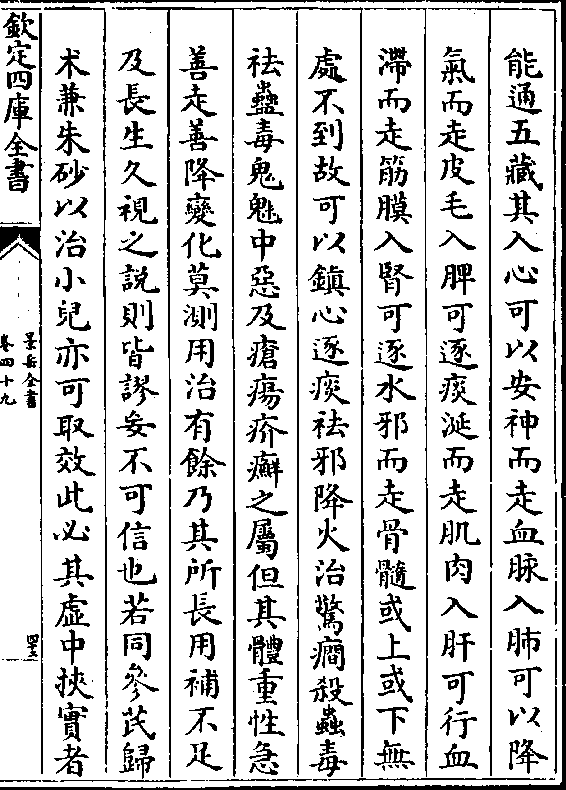 能通五藏其入心可以安神而走血脉入肺可以降
氣而走皮毛入脾可逐痰涎而走肌肉入肝可行血
滯而走筋膜入腎可逐水邪而走骨髓或上或下無
處不到故可以鎮心逐痰祛邪降火治驚癇殺蟲毒
祛蠱毒鬼魅中惡及瘡瘍疥癬之屬但其體重性急
善走善降變化莫測用治有餘乃其所長用補不足
及長生久視之說則皆謬妄不可信也若同參芪歸
术兼朱砂以治小兒亦可取效此必其虛中挾實者
欽定四庫全書
景岳全書
卷四十九